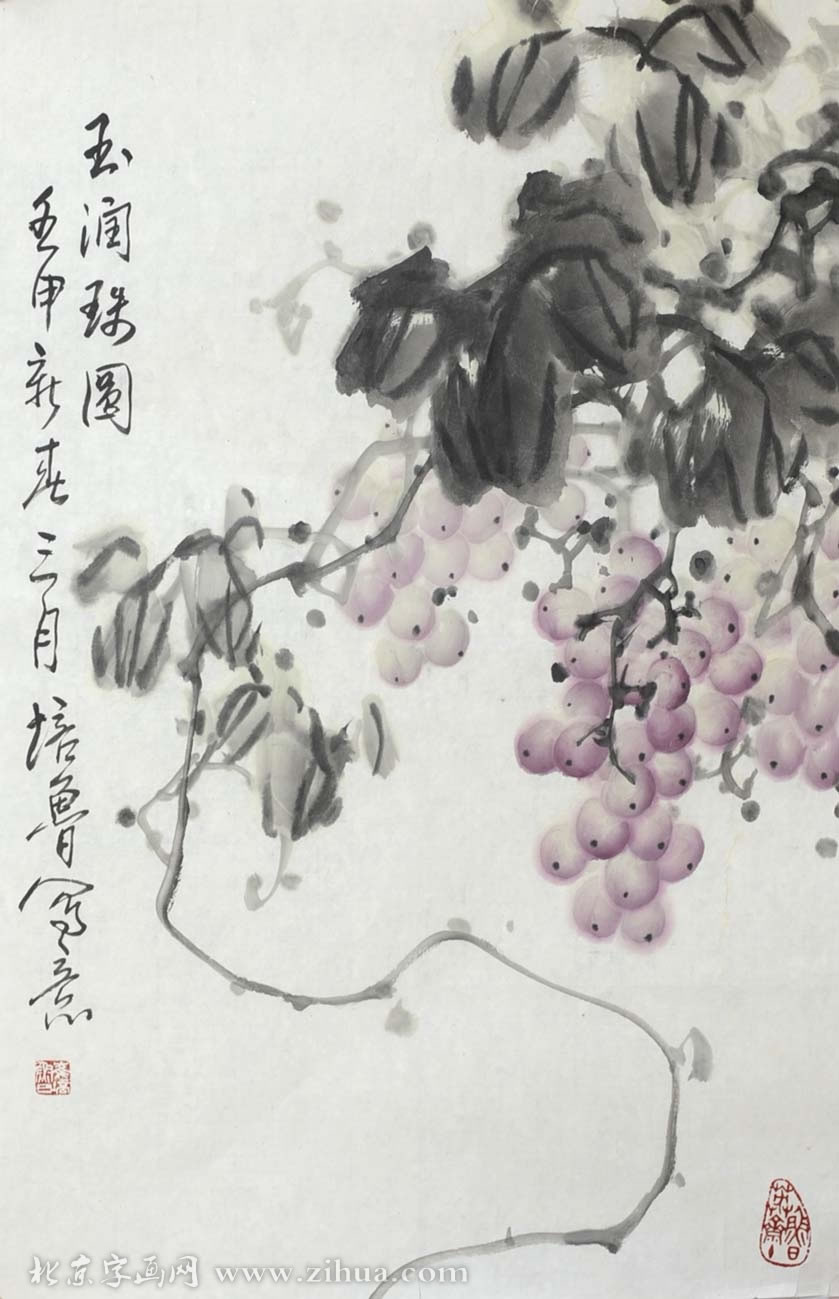 玉润珠圆
壬申新春三月培鲁写意
北京字画网 www.zihua.com